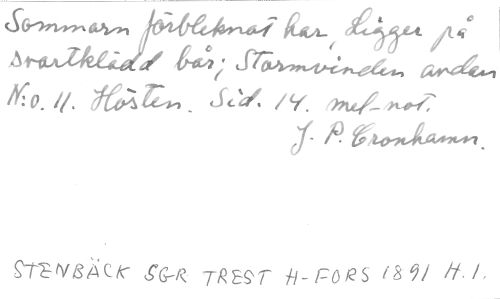 Sommarn förbleknat har, Ligger på
svartklädd bår; Stormvinden andan
N:o. 11. Hösten. Sid. 14. mel-not.
J. P. Cronhamn.
STENBÄCK SGR TREST H-FORS 1891 H.1.